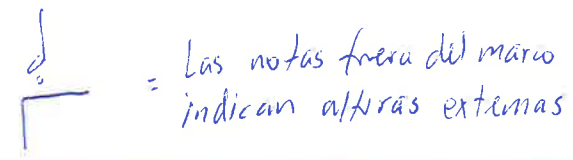 = Las notas fuera del marco
indican alturas extremas